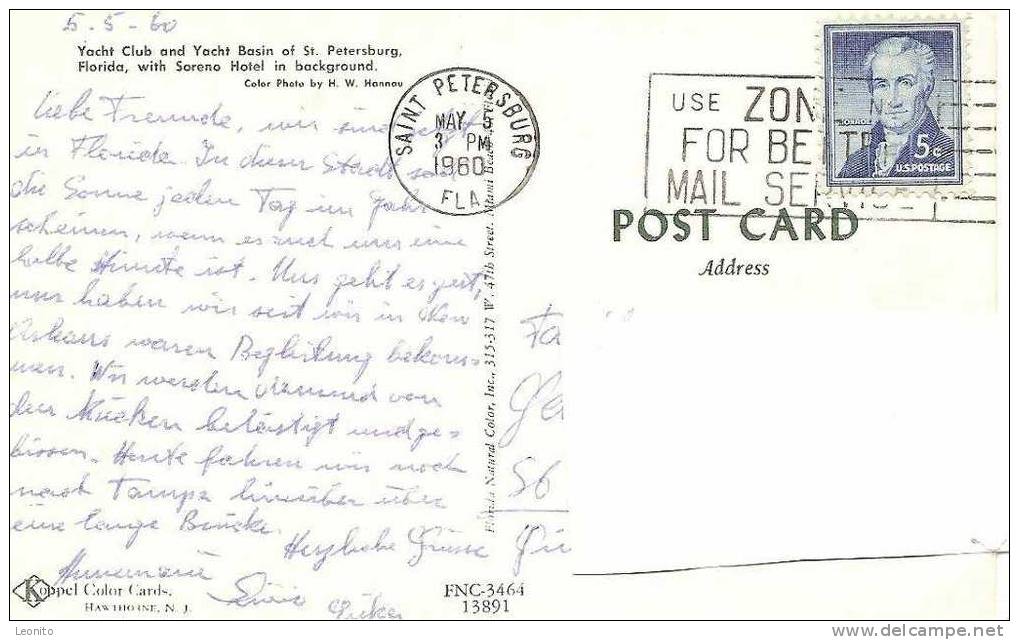 5.5-60
Yacht Club and Yacht Basin of St. Petersburg,
Florida, with Soreno Hotel in background.
Color Photo by H. W. Hannau
Liebe Freunde, wir sind
in Florida. In dieser Stadt soll
die Sonne jeden Tag im Jahr
scheinen, wenn es auch nur eine
halbe Stunde ist. Uns geht es gut,
nur haben wir seit wir in New
Orleans waren Begleitung bekom-
men. Wir werden von
den Mücken belästigt und ge-
bissen. Heute fahren wir noch
nach Tampa hinüber über
eine lange Brücke.
Herzliche Grüsse
Annemarie
Koppel Color Cards.
HAWTHORNE, N. J.
FNC-3464
13891
Florida Natural Color, Inc., 315-317 W. 47th Street, Miami Beach,
SAINT PETERSBURG
MAY 5
3 PM
1960
FLA
USE ZON
FOR BETTE
MAIL SERVICE
5c
U.S. POSTAGE
POST CARD
Address
Fa
56
Leonito
http://www.delcampe.net